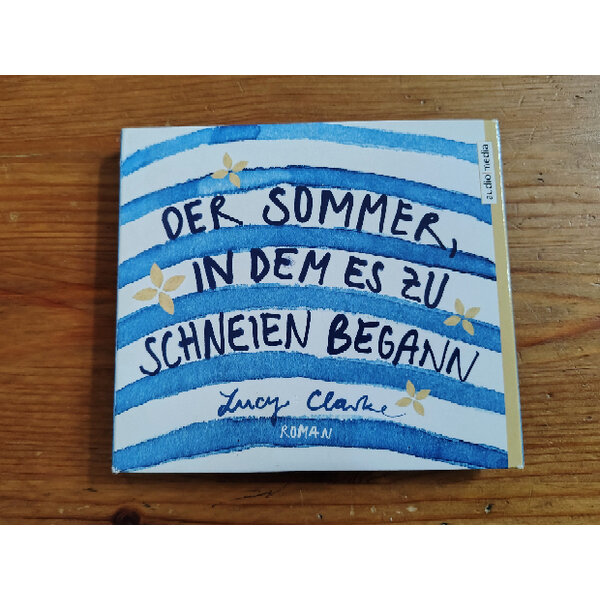 DER SOMMER,
IN DEM ES ZU
SCHNEIEN BEGANN
Lucy Clarke
ROMAN
audio media